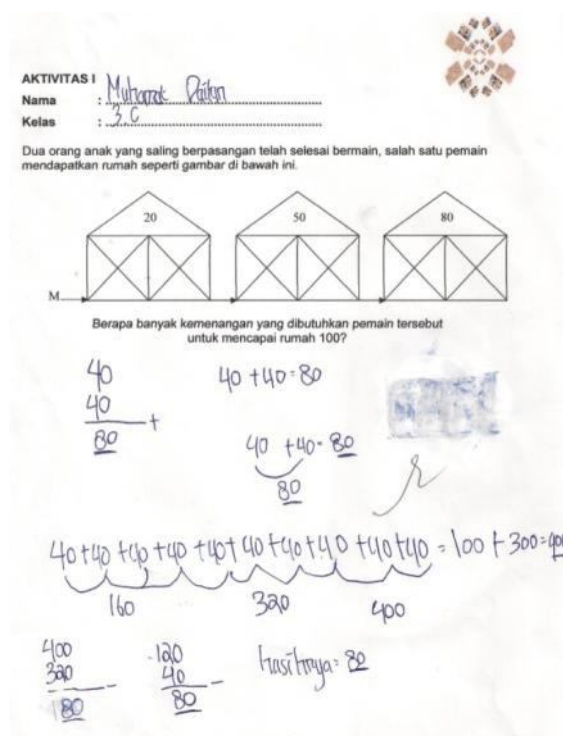 AKTIVITAS I
Nama :
Kelas : 3.C
Dua orang anak yang saling berpasangan telah selesai bermain, salah satu pemain
mendapatkan rumah seperti gambar di bawah ini.
20 50 80
M
Berapa banyak kemenangan yang dibutuhkan pemain tersebut
untuk mencapai rumah 100?
40
40 +
80
40 + 40 = 80
40 + 40 = 80
80
40+40+40+40+40+40+40+40+40+40 = 100 + 300 = 400
160 320 400
400
320 -
180
120
40 -
80
hasilnya = 80